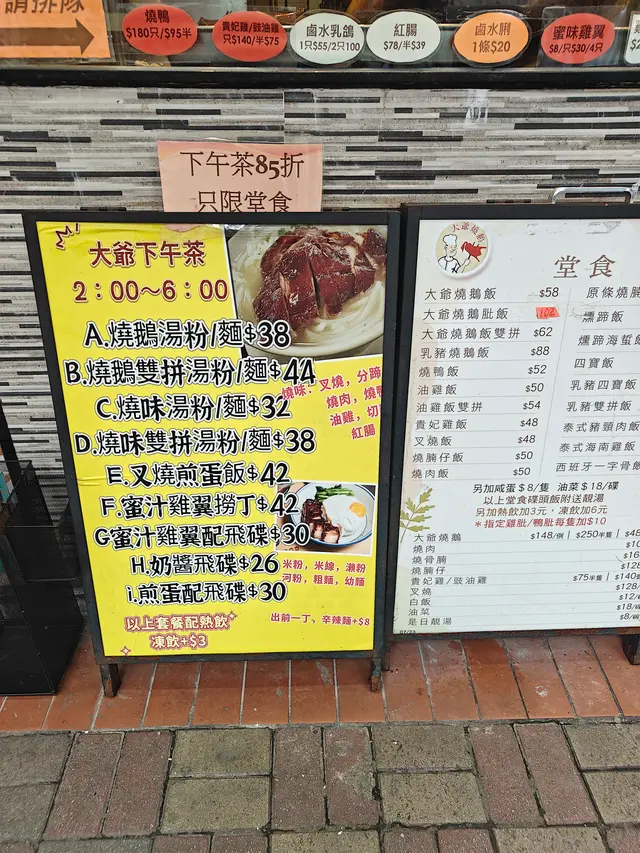 請排隊
燒鴨
$180只/$95半
貴妃雞/豉油雞
只$140/半$75
鹵水乳鴿
1只$55/2只100
紅腸
$78/半$39
鹵水脷
1條$20
蜜味雞翼
$8/只$30/4只
下午茶85折
只限堂食
大爺下午茶
2:00~6:00
A.燒鵝湯粉/麵$38
B.燒鵝雙拼湯粉/麵$44
C.燒味湯粉/麵$32
D.燒味雙拼湯粉/麵$38
E.叉燒煎蛋飯$42
F.蜜汁雞翼撈丁$42
G蜜汁雞翼配飛碟$30
H.奶醬飛碟$26
i.煎蛋配飛碟$30
燒味:叉燒,分蹄
燒肉,燒鴨
油雞,切
紅腸
米粉,米線,瀨粉
河粉,粗麵,幼麵
出前一丁,辛辣麵+$8
以上套餐配熱飲
凍飲+$3
大爺燒鵝
堂食
大爺燒鵝飯 $58
大爺燒鵝肶飯 102
大爺燒鵝飯雙拼 $62
乳豬燒鵝飯 $88
燒鴨飯 $52
油雞飯 $50
油雞飯雙拼 $54
貴妃雞飯 $48
叉燒飯 $48
燒腩仔飯 $50
燒肉飯 $50
原條燒腩
燻蹄飯
燻蹄海蜇
四寶飯
乳豬四寶飯
乳豬雙拼飯
泰式豬頸肉飯
泰式海南雞飯
西班牙一字骨飯
另加咸蛋$8/隻 油菜$18/碟
以上堂食碟頭飯附送靚湯
另加熱飲加3元,凍飲加6元
*指定雞肶/鴨肶每隻加$10
大爺燒鵝 $148/例 $250半隻 $48
燒肉 $10
燒骨腩 $16
燒腩仔 $128
貴妃雞/豉油雞 $75半隻 $140
叉燒 $128/
白飯 $12/
油菜 $18/
是日靚湯 $8/
07/23